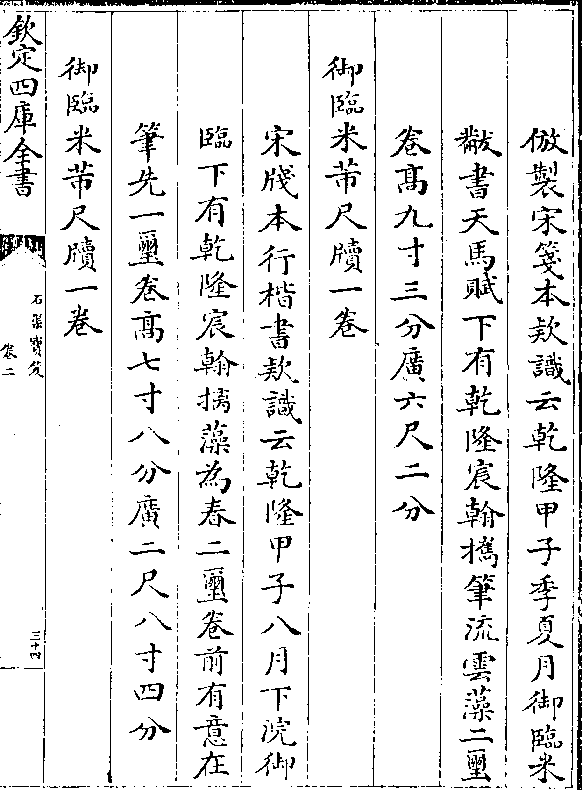 倣製宋箋本欵識云乾隆甲子季夏月御臨米
黻書天馬賦下有乾隆宸翰擕筆流雲藻二璽
卷髙九寸三分廣六尺二分
御臨米芾尺牘一卷
宋牋本行楷書欵識云乾隆甲子八月下浣御
臨下有乾隆宸翰摛藻為春二璽卷前有意在
筆先一璽卷髙七寸八分廣二尺八寸四分
御臨米芾尺牘一卷
欽定四庫全書
石渠寳笈
卷二
三十四